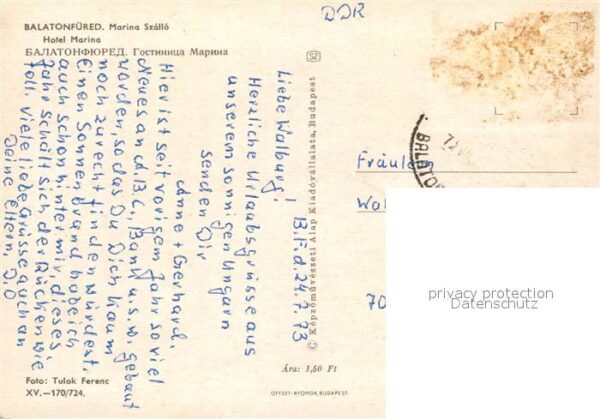 BALATONFÜRED. Marina Szálló
Hotel Marina
БАЛАТОНФЮРЕД. Гостиница Марина
DDR
B.F. d. 24.7.73
Liebe Walburg!
Herzliche Urlaubsgrüsse aus
unserem sonnigen Ungarn
senden Dir
Anne + Gerhard.
Hier ist seit vorigem Jahr so viel
Neues an d. B.C., Bank u.s.w. gebaut
worden, so das Du Dich kaum
noch zurecht finden würdest.
Einen Sonnenbrand habe ich
auch schon hinter mir, dieses
Jahr schält sich der Rücken wie
toll. viele liebe Grüsse auch an
Deine Eltern. D.O
© Képzőművészeti Alap Kiadóvállalata, Budapest
BALATON
Fräulein
70
privacy protection
Datenschutz
Ára: 1,50 Ft
Foto: Tulok Ferenc
XV.—170/724.
OFFSET-NYOMDA, BUDAPEST